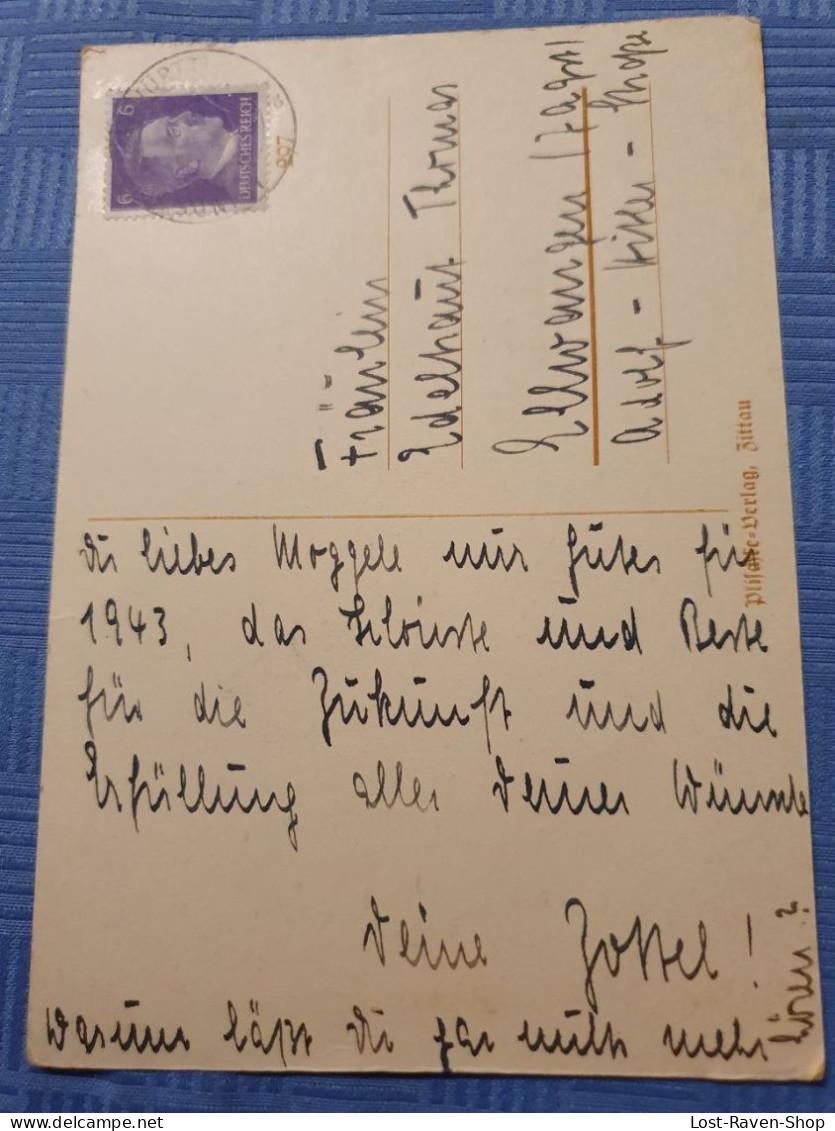 6 6 6
DEUTSCHES REICH
Fräulein
Edeltraut Thomas
Ellwangen / Jagst /
Adolf - Hitler - Straße
Plischke-Verlag, Zittau
Du liebes Moggele nur Gutes für
1943, das Schönste und Beste
für die Zukunft und die
Erfüllung aller Deiner Wünsche
Deine Zottel!
Warum läßt Du gar nichts mehr
hören?
Lost-Raven-Shop